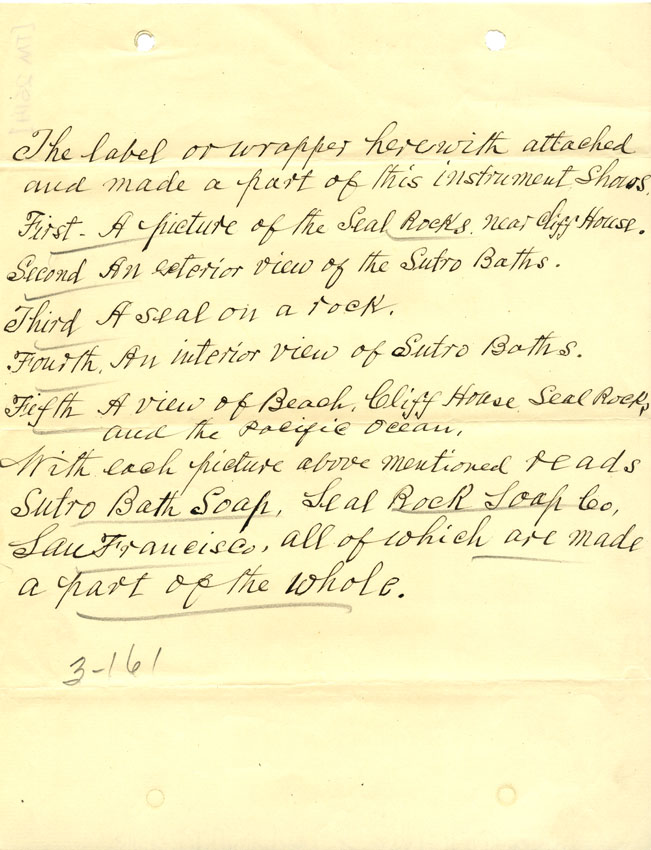 The label or wrapper herewith attached
and made a part of this instrument, Shows,
First - A picture of the Seal Rocks, near Cliff House.
Second An exterior view of the Sutro Baths.
Third A seal on a rock.
Fourth, An interior view of Sutro Baths.
Fifth A view of Beach, Cliff House Seal Rocks,
and the Pacific Ocean,
With each picture above mentioned reads
Sutro Bath Soap, Seal Rock Soap Co,
San Francisco, all of which are made
a part of the whole.
3-161